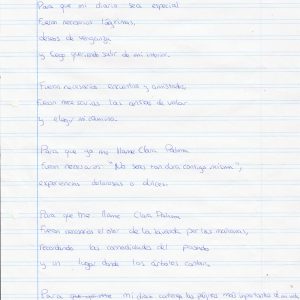 Para que mi diario sea especial
Fueron necesarios lágrimas,
deseos de venganza
y fuego queriendo salir de mi interior.
Fueron necesarios encuentros y amistades,
Fueron necesarias las ansias de volar
y elegir mi camino.
Para que yo me llame Clara Paloma
Fueron necesarios "No seas tan dura contigo misma",
experiencias dolorosas o dulces.
Para que me llame Clara Paloma
Fueron necesarios el olor de la lavanda por las mañanas,
recordando las comodidades del pasado
y un lugar donde los árboles cantan.
Para que mi diario contenga las páginas más importantes de mi vida